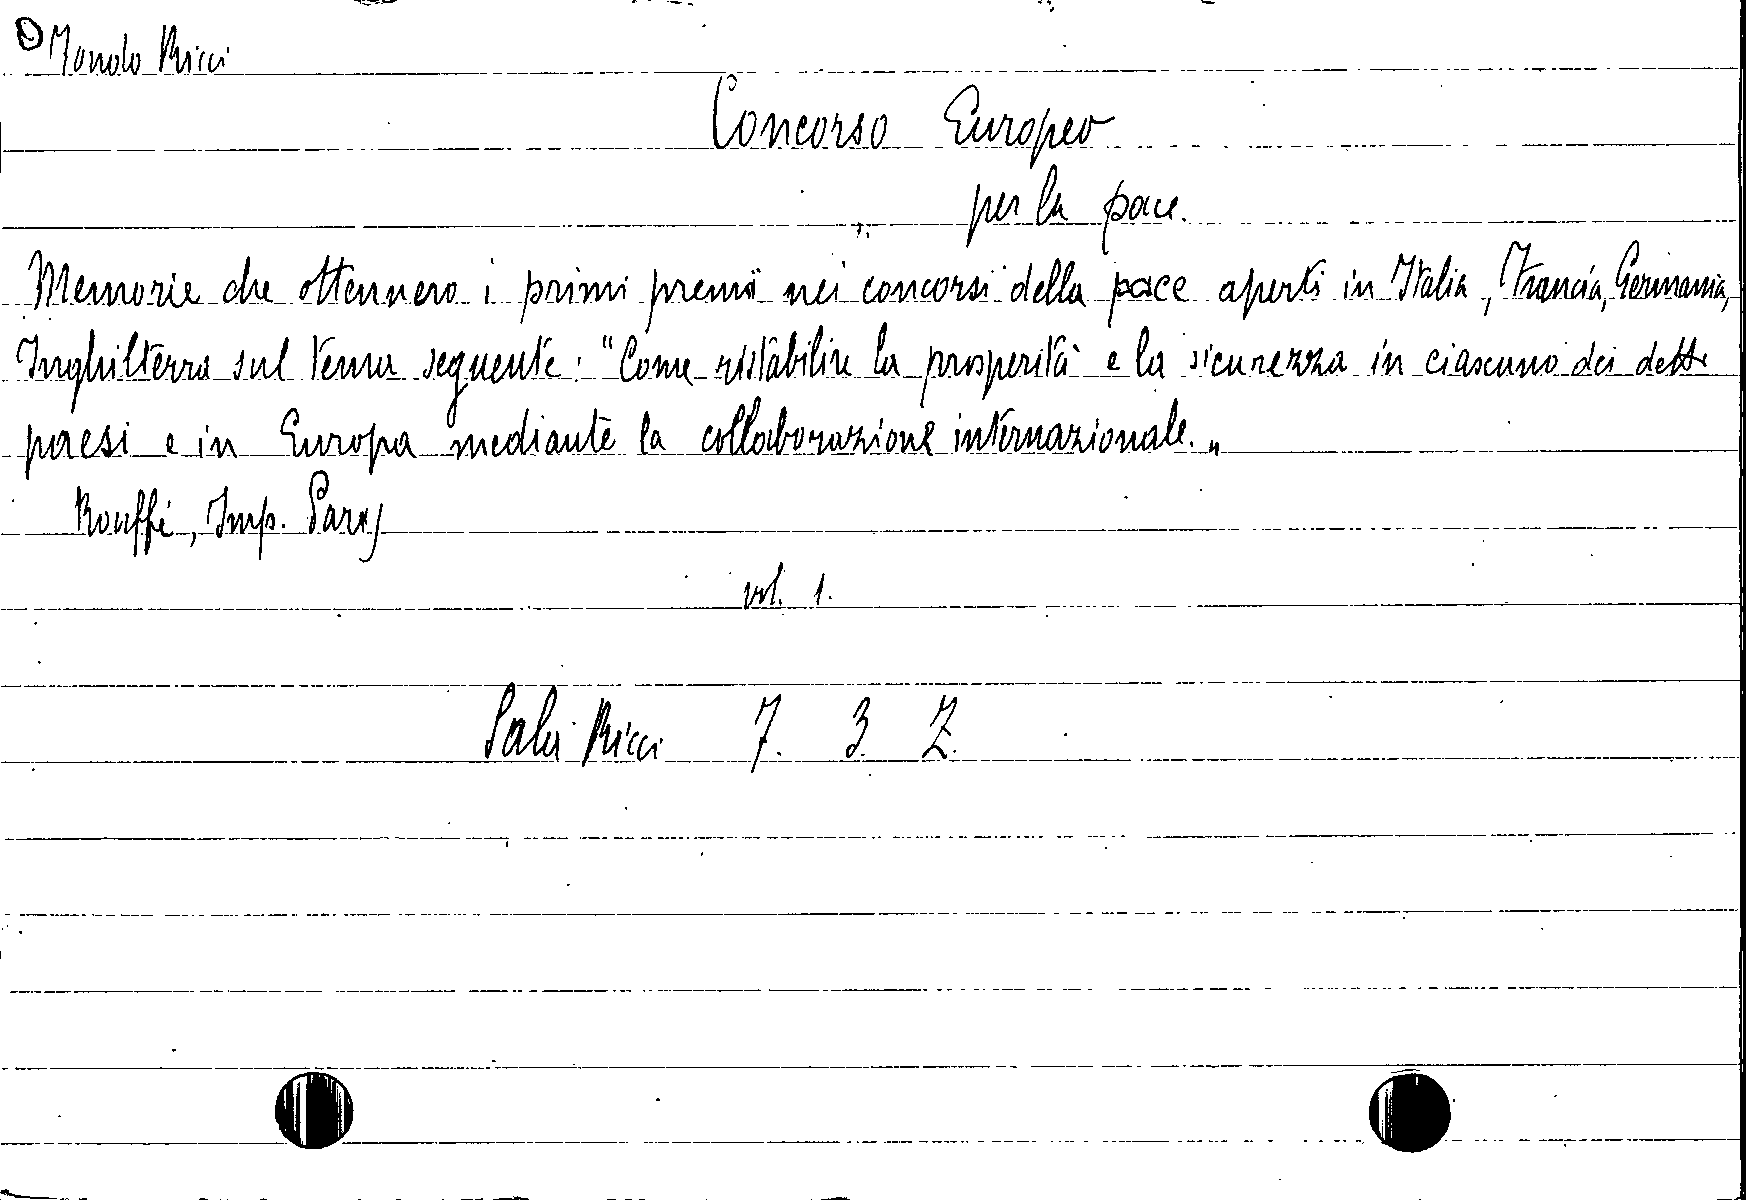 Mondo Ricci
Concorso Europeo
per la pace.
Memorie che ottennero i primi premii nei concorsi della pace aperti in Italia, Francia, Germania,
Inghilterra sul tema seguente: "Come ristabilire la prosperità e la sicurezza in ciascuno dei detti
paesi e in Europa mediante la collaborazione internazionale.„
Rouffé, Imp. Paris
vol. 1.
Sala Ricci 7. 3. Z.